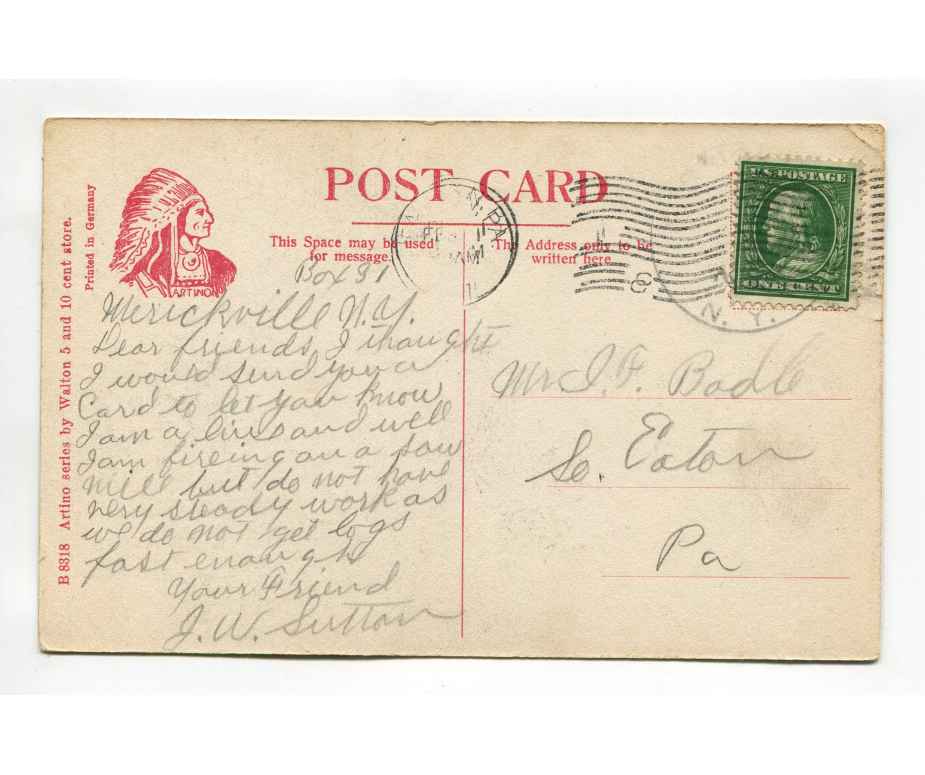 B 8318 Artino series by Walton 5 and 10 cent store.
Printed in Germany
ARTINO
POST CARD
This Space may be used
for message.
The Address only to be
written here
U.S. POSTAGE
ONE CENT
N. Y.
Box 31
Merickville N.Y.
Dear friends, I thought
I would send you a
Card to let you know
I am a live and well
I am fireing on a saw
mill but do not have
very steady work as
we do not get logs
fast enough
Your Friend
J. W. Sutton
Mr I. F. Bodle
So. Eaton
Pa